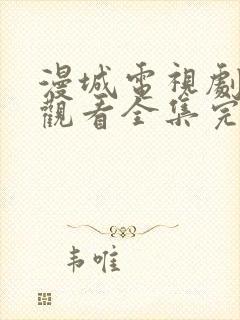 漫城電視劇
觀看全集完
韦唯